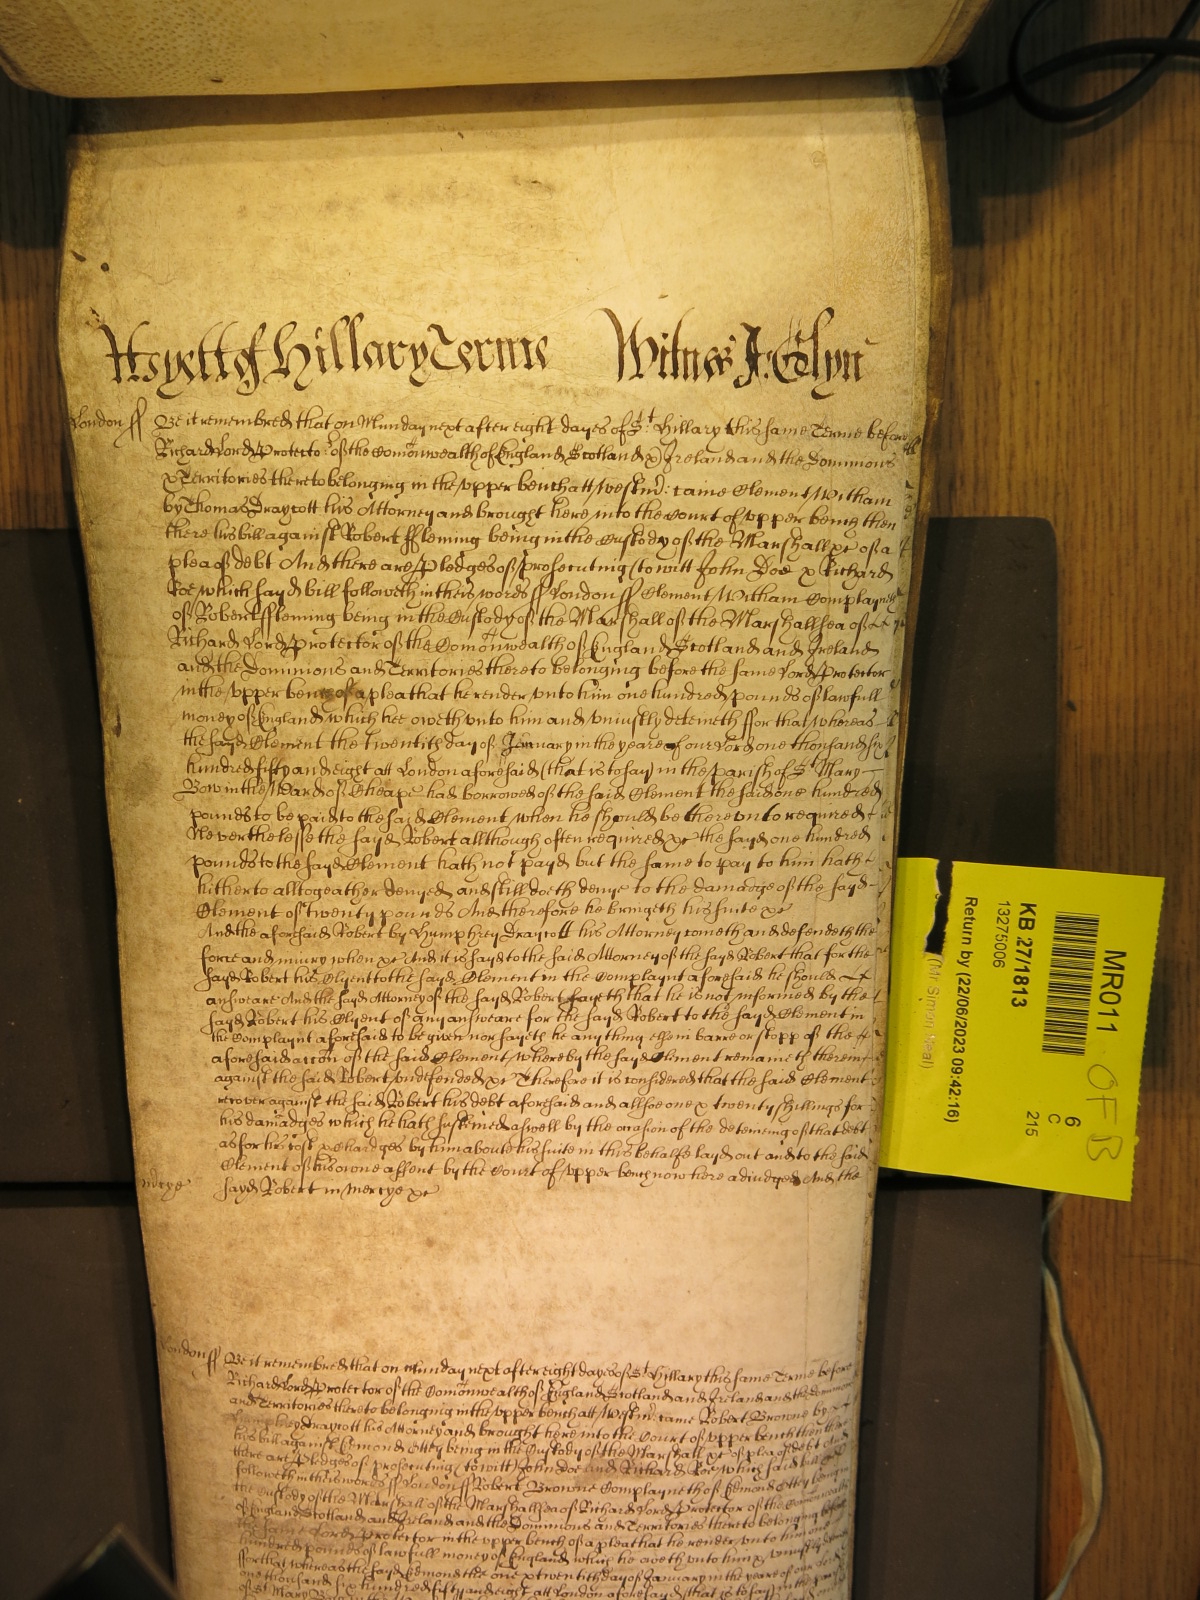 As yett of Hillary Terme Witnes J: Glyn
London ss Be it remembred that on Munday next after eight dayes of St. Hillary this same Terme before
Richard Lord Protector of the Comonwealth of England Scotland & Ireland and the Dominions
& Territories thereto belonging in the upper bench att Westmr: came Clement Witham
by Thomas Draycott his Attorney and brought here into the Court of upper bench then
there his bill against Robert Fleming being in the Custody of the Marshall &c of a
plea of debt And there are Pledges of Prosecuting (to witt John Doe & Richard
Roe which sayd bill followeth in theis words ss London ss Clement Witham Complayneth
of Robert Fleming being in the Custody of the Marshall of the Marshallsea of
Richard Lord Protector of the Comonwealth of England Scotland and Ireland
and the Dominions and Territories thereto belonging before the same Lord Protector
in the upper bench of a plea that he render unto him one hundred pounds of lawfull
money of England which hee oweth unto him and uniustly deteineth ffor that whereas
the sayd Clement the twentith day of January in the yeare of our Lord one thousand six
hundred fifty and eight att London aforesaid (that is to say) in the parish of St Mary
Bow in the Ward of Cheape had borrowed of the said Clement the said one hundred
pounds to be paid to the said Clement when he should be thereunto required
Neverthelesse the sayd Robert allthough often required &c the sayd one hundred
pounds to the sayd Clement hath not payd but the same to pay to him hath
hitherto alltogeather denyed and still doeth denye to the damadge of the sayd
Clement of twenty pounds And therefore he bringeth his suite &c
And the aforesaid Robert by Humphrey Draycott his Attorney cometh and defendeth the
force and iniury when &c And it is sayd to the said Attorney of the sayd Robert that for the
sayd Robert his Clyent to the sayd Clement in the Complaynt aforesaid he should
answeare And the sayd Attorney of the sayd Robert sayeth that he is not informed by the
sayd Robert his Clyent of any answeare for the sayd Robert to the sayd Clement in
the Complaynt aforesaid to be given nor sayeth he any thing else in barre or stopp of the
aforesaid accon of the said Clement whereby the sayd Clement remaineth therein
against the said Robert undefended &c Therefore it is considered that the said Clement
recover against the said Robert his debt aforesaid and allsoe one & twenty shillings for
his damadges which he hath susteined aswell by the occasion of the deteining of that debt
as for his cost & chardges by him about his suite in this behalfe layd out and to the said
Clement of his owne assent by the Court of upper bench now here adiudged And the
mercye sayd Robert in mercye &c
London ss Be it remembred that on Munday next after eight dayes of St Hillary this same Terme before
Richard Lord Protector of the Comonwealth of England Scotland and Ireland and the Dominions
and Territories thereto belonging in the upper bench att Westmr: came Robert Browne by
Humphrey Draycott his Attorney and brought here into the Court of upper bench then there
his bill against Edmond Ottey being in the Custody of the Marshall &c of plea of debt And
there are Pledges of prosecuting (to witt) John Doe and Richard Roe which said bill
followeth in theis words ss London ss Robert Browne Complayneth of Edmond Ottey being in
the Custody of the Marshall of the Marshallsea of Richard Lord Protector of the Comonwealth
of England Scotland and Ireland and the Dominions and Territories thereto belonging before
the same Lord Protector in the upper bench of a plea that he render unto him
hundred pounds of lawfull money of England which he oweth unto him & uniustly
ffor that whereas the sayd Edmond the one & twentith day of January in the yeare of our Lord
one thousand six hundred fifty and eight att London aforesaid (that is to say) in the parish
of St Mary Bow in the
MR011 OF B
6
C
215
KB 27/1813
13275006
Return by (22/06/2023 09:42:16)
(Mr Simon Neal)